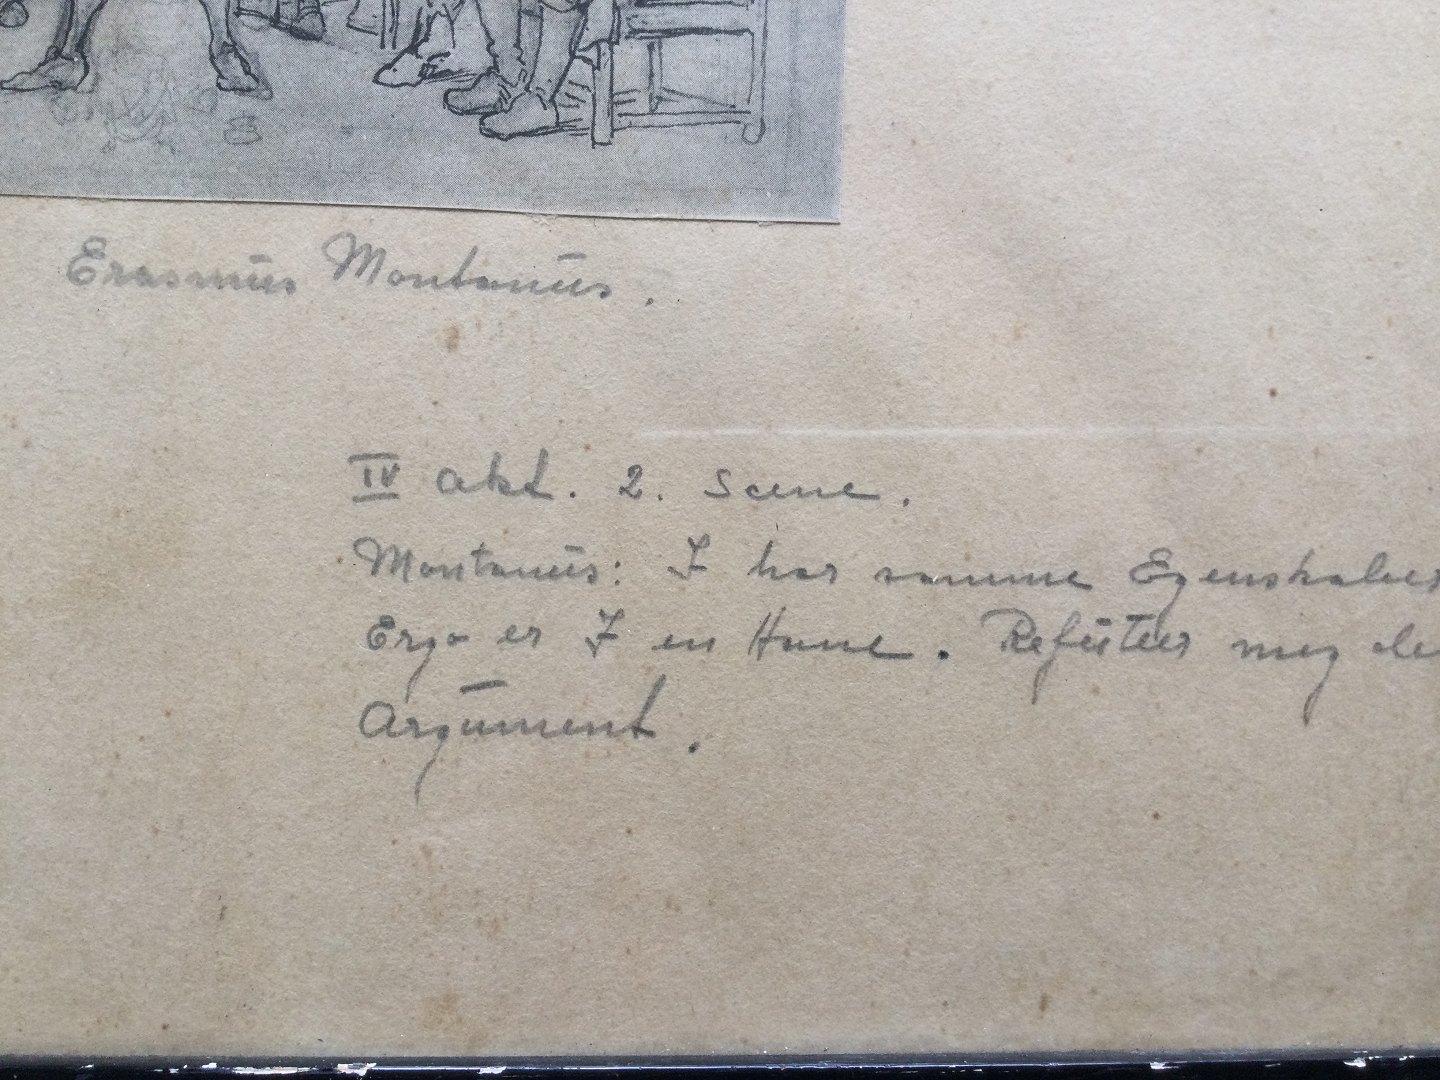 Erasmus Montanus.
IV akt. 2. scene.
Montanus: I har samme Egenskaber
Ergo er I en Hane. Refuteer mig de
Argument.